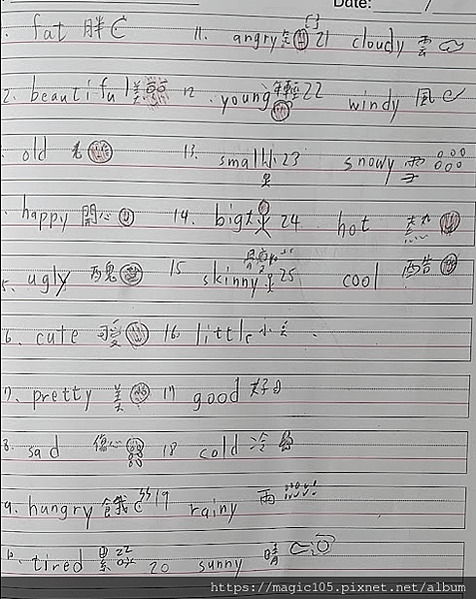 Date: /
. fat 胖 11. angry 生 21 cloudy 雲
2. beautiful 美 12. young 年輕 22 windy 風
. old 老 13. small 小 23 snowy 雪
. happy 開心 14. big 大 24 hot 熱
5. ugly 醜 15 skinny 25 cool 酷
6. cute 可愛 16. little 小
7. pretty 美 17 good 好
8. sad 傷心 18 cold 冷
9. hungry 餓 19 rainy 雨
tired 累 20 sunny 晴
https://magic105.pixnet.net/album